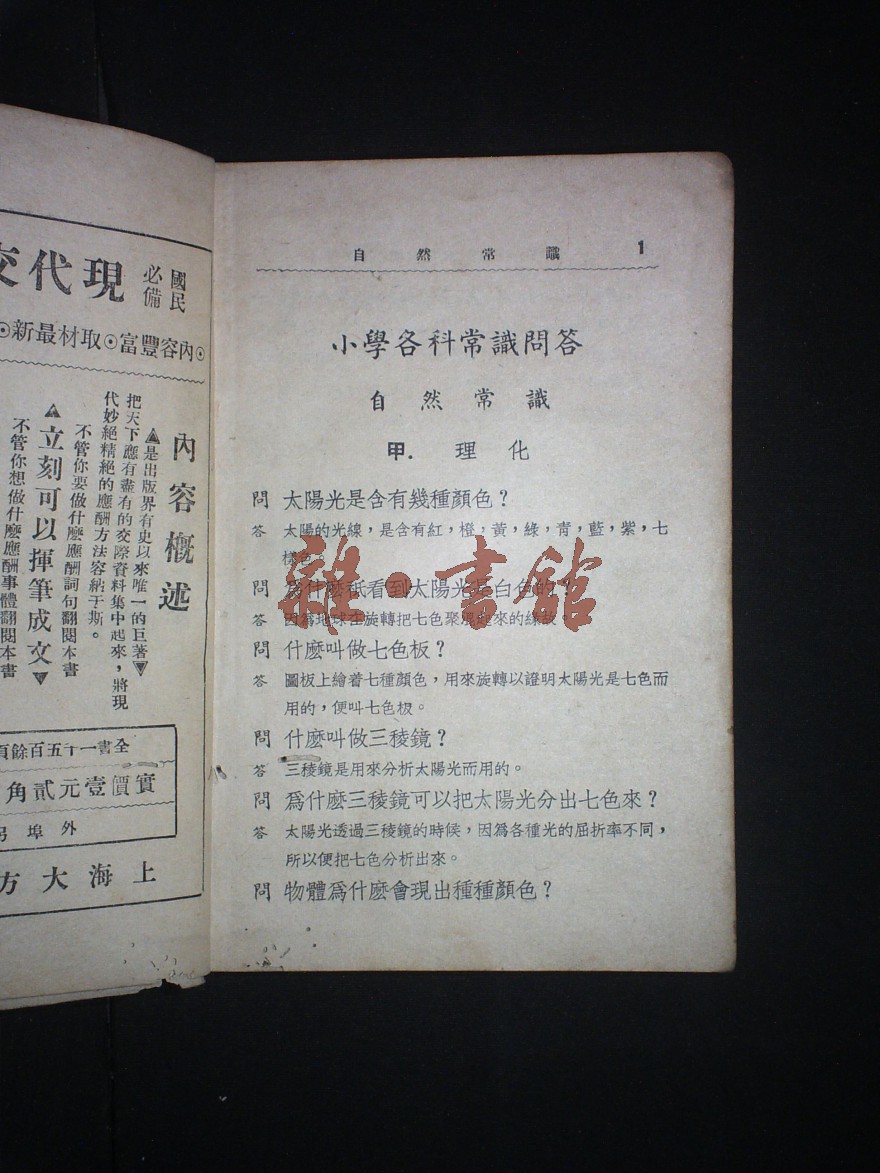 自然常識 1
小學各科常識問答
自然常識
甲．理化
問 太陽光是含有幾種顏色？
答 太陽的光線，是含有紅，橙，黃，綠，靑，藍，紫，七
樣色。
問 爲什麽祗看到太陽光是白色的？
答 因爲地球在旋轉把七色聚混起來的緣故。
問 什麽叫做七色板？
答 圖板上繪着七種顏色，用來旋轉以證明太陽光是七色而
用的，便叫七色板。
問 什麽叫做三稜鏡？
答 三稜鏡是用來分析太陽光而用的。
問 爲什麽三稜鏡可以把太陽光分出七色來？
答 太陽光透過三稜鏡的時候，因爲各種光的屈折率不同，
所以便把七色分析出來。
問 物體爲什麽會現出種種顏色？
雜·書館
國民
必備
現代交
⊙內容豐富⊙取材最新⊙
內容槪述
▲是出版界有史以來唯一的巨著▼
把天下應有盡有的交際資料集中起來，將現
代妙絕精絕的應酬方法容納于斯。
不管你要做什麽應酬詞句翻閱本書
▲立刻可以揮筆成文▼
不管你想做什麽應酬事體翻閱本書
全書一千五百餘頁
實價壹元貳角
外埠另
上海大方